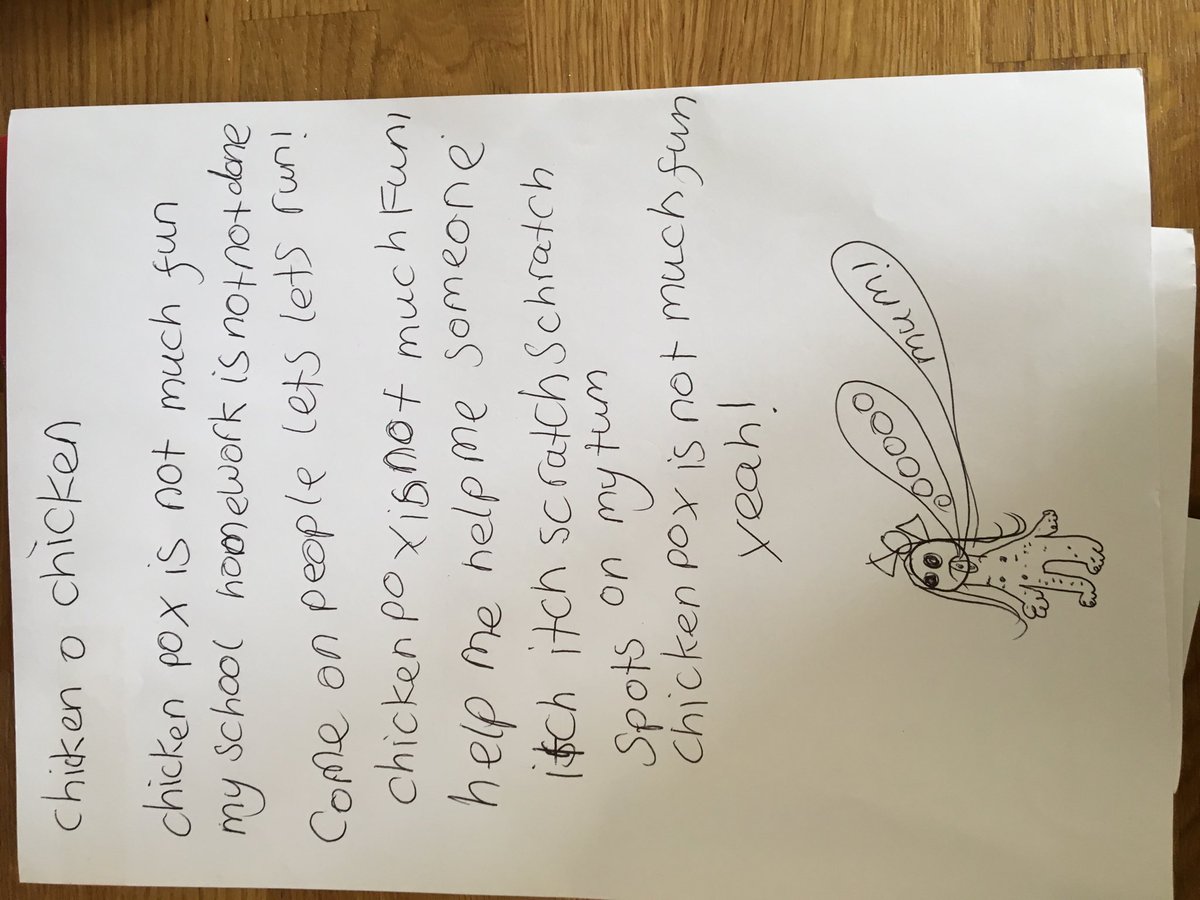 chicken o chicken
chicken pox is not much fun
my school homework is not not done
Come on people lets lets run!
chicken pox is not much Fun!
help me help me someone
itch itch scratch Schratch
Spots on my tum
chicken pox is not much fun
yeah!
ooooooo
mum!